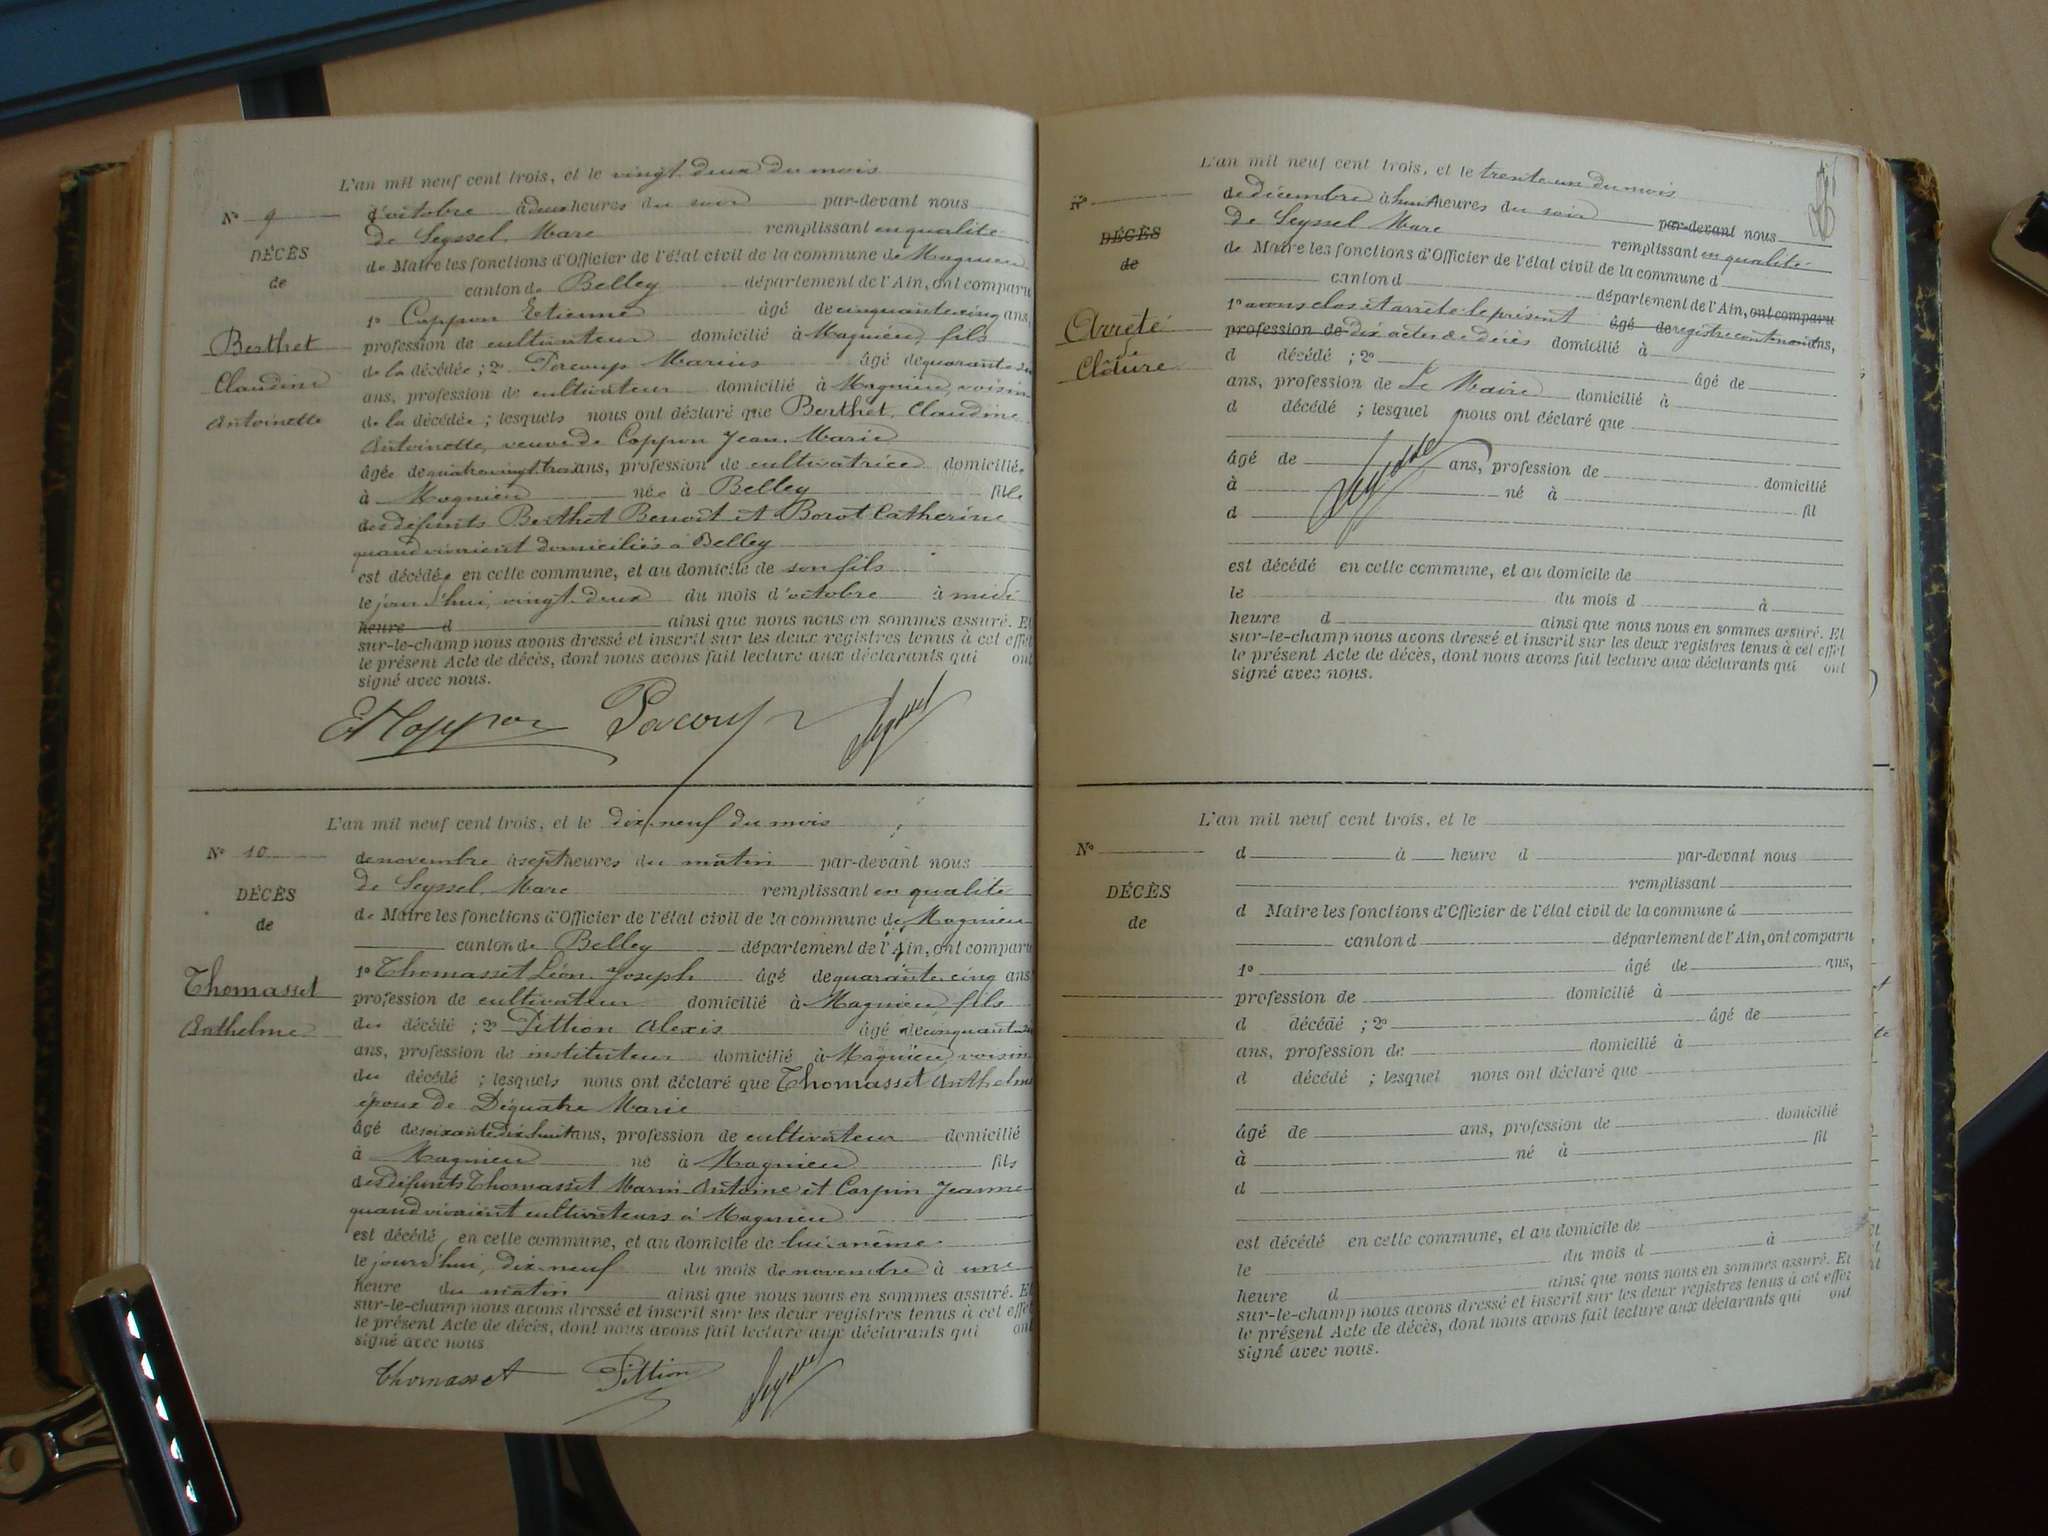 L'an mil neuf cent trois, et le vingt deux du mois
N° 9 d'octobre à deux heures du soir par-devant nous
de Seyssel, Marc remplissant en qualité
DÉCÈS
de Maire les fonctions d'Officier de l'état civil de la commune de Magnieu
de
canton de Belley département de l'Ain, ont comparu
1° Coppon Etienne âgé de cinquante cinq ans,
Berthet
profession de cultivateur domicilié à Magnieu, fils
de la décédée ; 2° Pacoup Marius âgé de quarante six
Claudine
ans, profession de cultivateur domicilié à Magnieu, voisin
Antoinette
de la décédée ; lesquels nous ont déclaré que Berthet, Claudine
Antoinette, veuve de Coppon Jean Marie
âgée de quatre vingt trois ans, profession de cultivatrice domiciliée
à Magnieu née à Belley fille
des défunts Berthet Benoit et Borot Catherine
quand vivaient domiciliés à Belley
est décédée en cette commune, et au domicile de son fils
le jourd'hui, vingt deux du mois d'octobre à midi
heure d ainsi que nous nous en sommes assuré. Et
sur-le-champ nous avons dressé et inscrit sur les deux registres tenus à cet effet
le présent Acte de décès, dont nous avons fait lecture aux déclarants qui ont
signé avec nous.
E Coppon Pacoup Seyssel
L'an mil neuf cent trois, et le dix-neuf du mois
N° 10 de novembre à sept heures du matin par-devant nous
de Seyssel, Marc remplissant en qualité
DÉCÈS
de Maire les fonctions d'Officier de l'état civil de la commune de Magnieu
de
canton de Belley département de l'Ain, ont comparu
1° Thomasset Léon Joseph âgé de quarante cinq ans
Thomasset
profession de cultivateur domicilié à Magnieu, fils
Anthelme
du décédé ; 2° Pittion Alexis âgé de cinquante six
ans, profession de instituteur domicilié à Magnieu, voisin
du décédé ; lesquels nous ont déclaré que Thomasset Anthelme
époux de Déquatre Marie
âgé de soixante dix huit ans, profession de cultivateur domicilié
à Magnieu né à Magnieu fils
des défunts Thomasset Marin Antoine et Carpin Jeanne
quand vivaient cultivateurs à Magnieu
est décédé en cette commune, et au domicile de lui-même
le jourd'hui, dix-neuf du mois de novembre à une
heure du matin ainsi que nous nous en sommes assuré. Et
sur-le-champ nous avons dressé et inscrit sur les deux registres tenus à cet effet
le présent Acte de décès, dont nous avons fait lecture aux déclarants qui ont
signé avec nous
Thomasset Pittion Seyssel
L'an mil neuf cent trois, et le trente un du mois
N° de décembre à huit heures du soir par-devant nous
de Seyssel Marc remplissant en qualité
DÉCÈS
de Maire les fonctions d'Officier de l'état civil de la commune d
de
canton d département de l'Ain, ont comparu
1° avons clos et arrêté le présent âgé de registre contenant ans,
Arrêté
profession de dix actes de décès domicilié à
de
d décédé ; 2° âgé de
Clôture
ans, profession de Le Maire domicilié à
d décédé ; lesquel nous ont déclaré que
âgé de ans, profession de domicilié
à né à fil
d
Seyssel
est décédé en cette commune, et au domicile de
le du mois d à
heure d ainsi que nous nous en sommes assuré. Et
sur-le-champ nous avons dressé et inscrit sur les deux registres tenus à cet effet
le présent Acte de décès, dont nous avons fait lecture aux déclarants qui ont
signé avec nous.
L'an mil neuf cent trois, et le
N° d à heure d par-devant nous
remplissant
DÉCÈS
d Maire les fonctions d'Officier de l'état civil de la commune d
de
canton d département de l'Ain, ont comparu
1° âgé de ans,
profession de domicilié à
d décédé ; 2° âgé de
ans, profession de domicilié à
d décédé ; lesquel nous ont déclaré que
âgé de ans, profession de domicilié
à né à fil
d
est décédé en cette commune, et au domicile de
le du mois d à
heure d ainsi que nous nous en sommes assuré. Et
sur-le-champ nous avons dressé et inscrit sur les deux registres tenus à cet effet
le présent Acte de décès, dont nous avons fait lecture aux déclarants qui ont
signé avec nous.